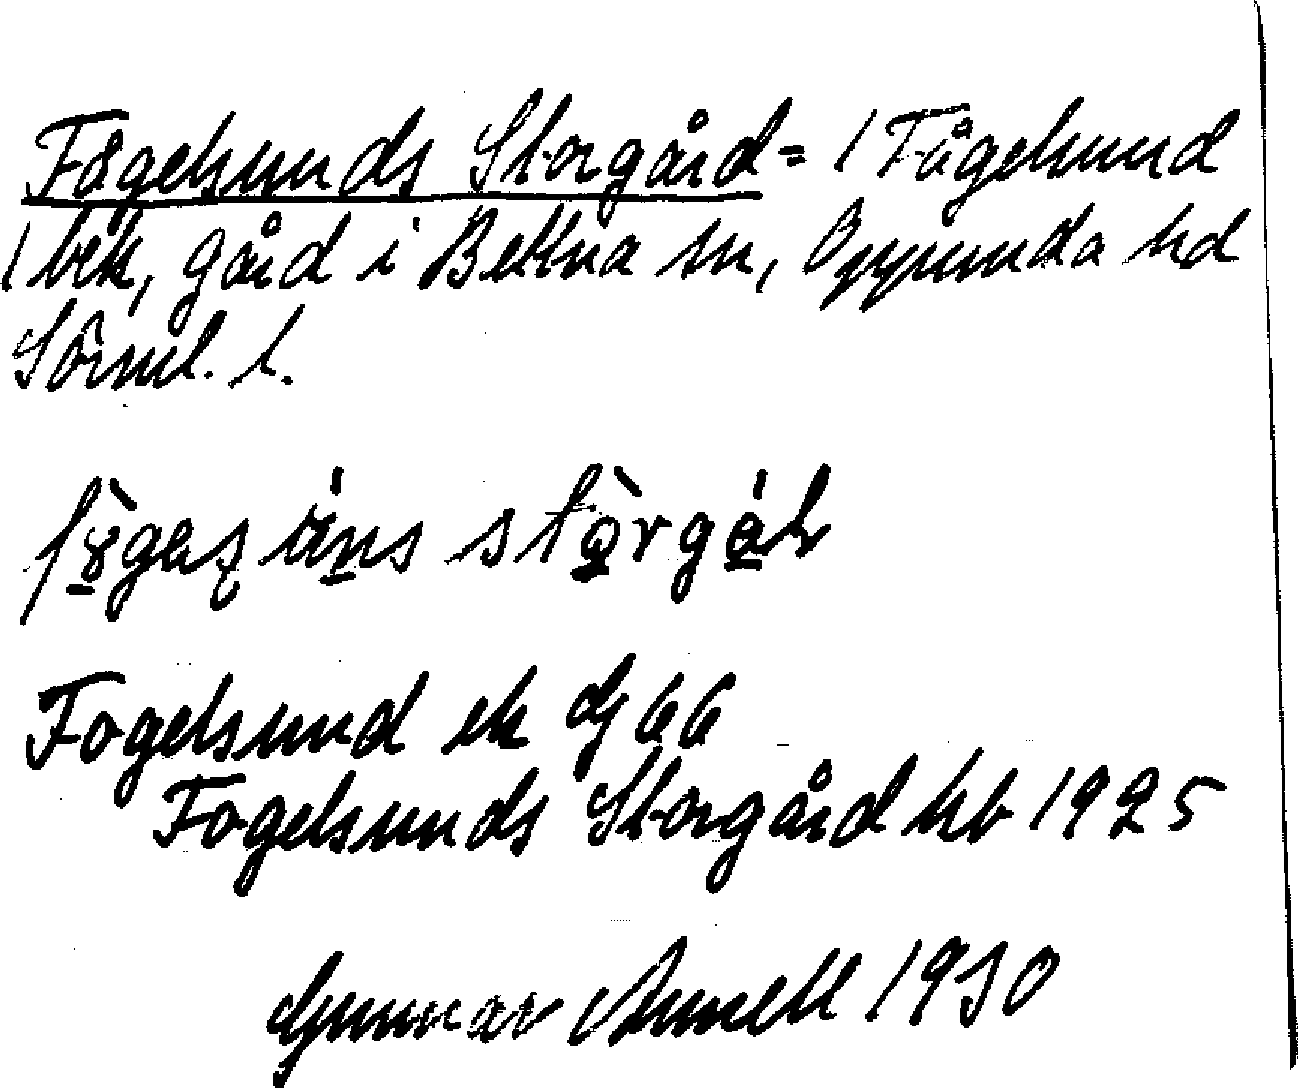 Fågelsunds Storgård = 1 Fågelsund
1 bek, gård i Bettna sn, Oppunda hd
Södml. l.
storgå
Fogelsund ek Gj 66
Fogelsunds Storgård hb 1925
Gunnar 1930